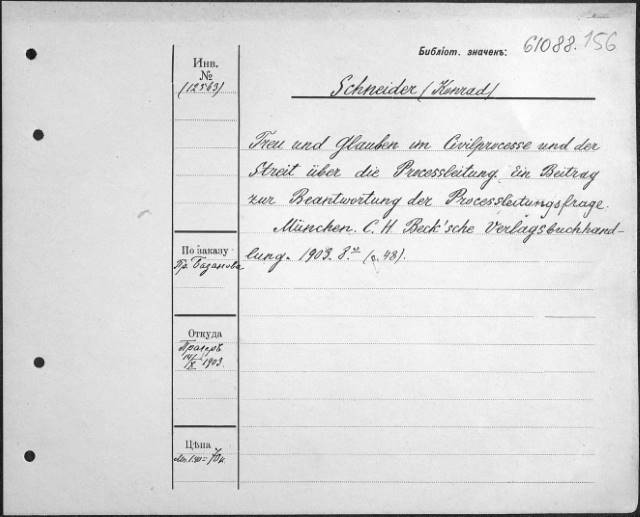 Библіот. значекъ: 61088.156
Инв.
№
(12563)
Schneider (Konrad)
Treu und Glauben im Civilprocesse und der
Streit über die Processleitung. Ein Beitrag
zur Beantwortung der Processleitungsfrage.
München. C. H. Beck'sche Verlagsbuchhand-
lung. 1903. 8.º (c. 48).
По заказу
Пр. Базанова
Откуда
14/IX 1903.
Цѣна
70 к.